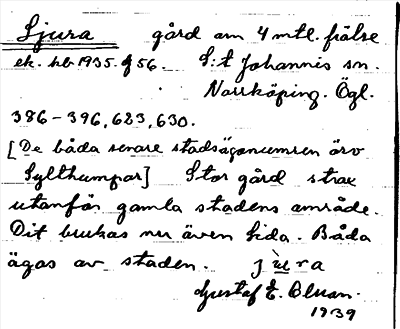 Ljura gård om 4 mtl. frälse
ek. kb 1935. g 56. S:t Johannis sn.
Norrköping. Ögl.
386-396, 623, 630.
[De båda senare stadsägonumren äro
Sylthumpar] Stor gård strax
utanför gamla stadens område.
Dit brukas nu även Lida. Båda
ägas av staden. jùra
Gustaf E.
1939